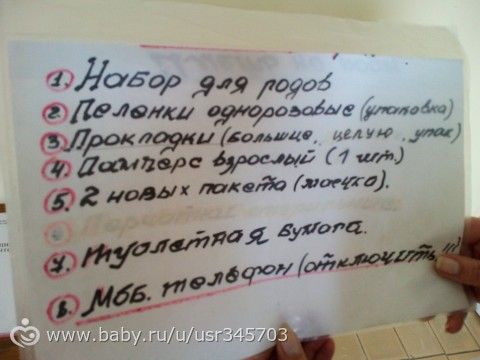 1. Набор для родов
2. Пеленки однорозовые (упаковка)
3. Прокладки (большие, целую, упак)
4. Памперс взрослый (1 шт.)
5. 2 новых пакета (маечка).
7. Туолетная бумага.
8. Моб. телефон (отключить!!!)
www.baby.ru/u/usr345703